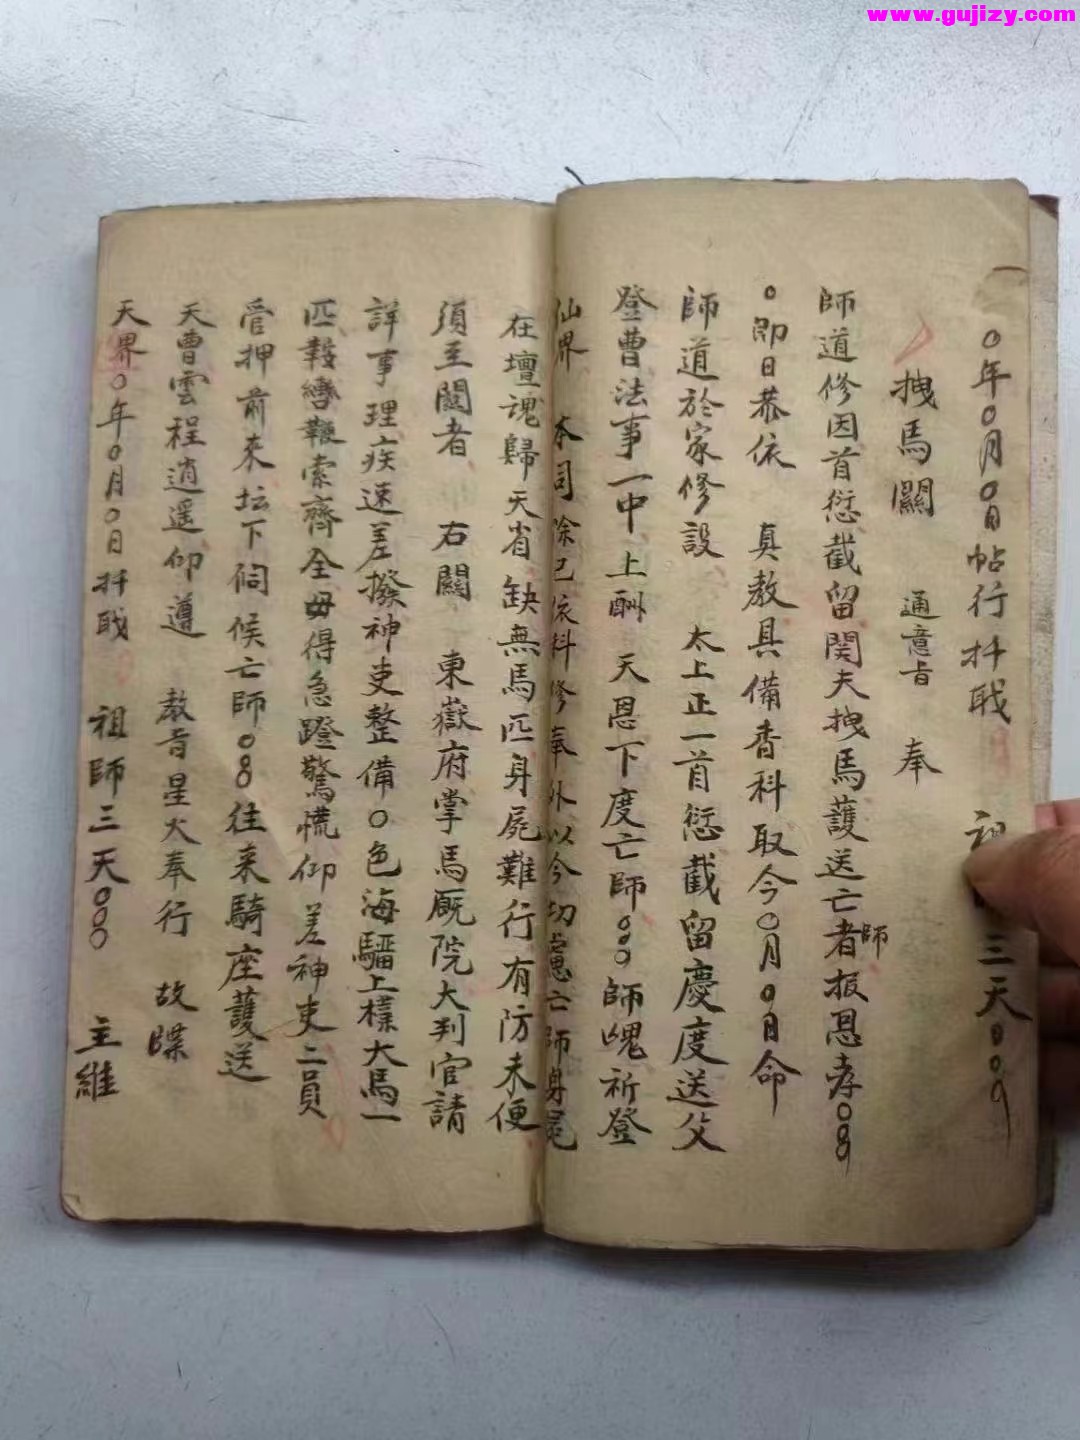 www.gujizy.com
〇年〇月〇日帖行扞戝 祖三天〇〇〇
拽馬關 通意旨 奉
師道修因首愆截留関夫拽馬護送亡者師报恩孝〇〇〇
〇郎日恭依 真教具備香科取今〇月〇日命
師道於家修設 太上正一首愆截留慶度送父
登曹法事一中 上酬 天恩下度亡師〇〇〇師魂祈登
仙界 本司除已依科修奉外以今切慮亡師身屍
在壇魂歸天省缺無馬匹身屍難行有防未便
須至關者 右關 東嶽府掌馬厩院大判官請
詳事理疾速差撥神吏整備〇色海騮上樣大馬一
匹鞍轡鞭索齊全毋得急蹬驚慌仰差神吏二員
管押前来坛下伺候亡師〇〇〇往来騎座護送
天曹雲程逍遥仰遵 教旨星火奉行 故牒
天界〇年〇月〇日扞戝 祖師三天〇〇〇 主維